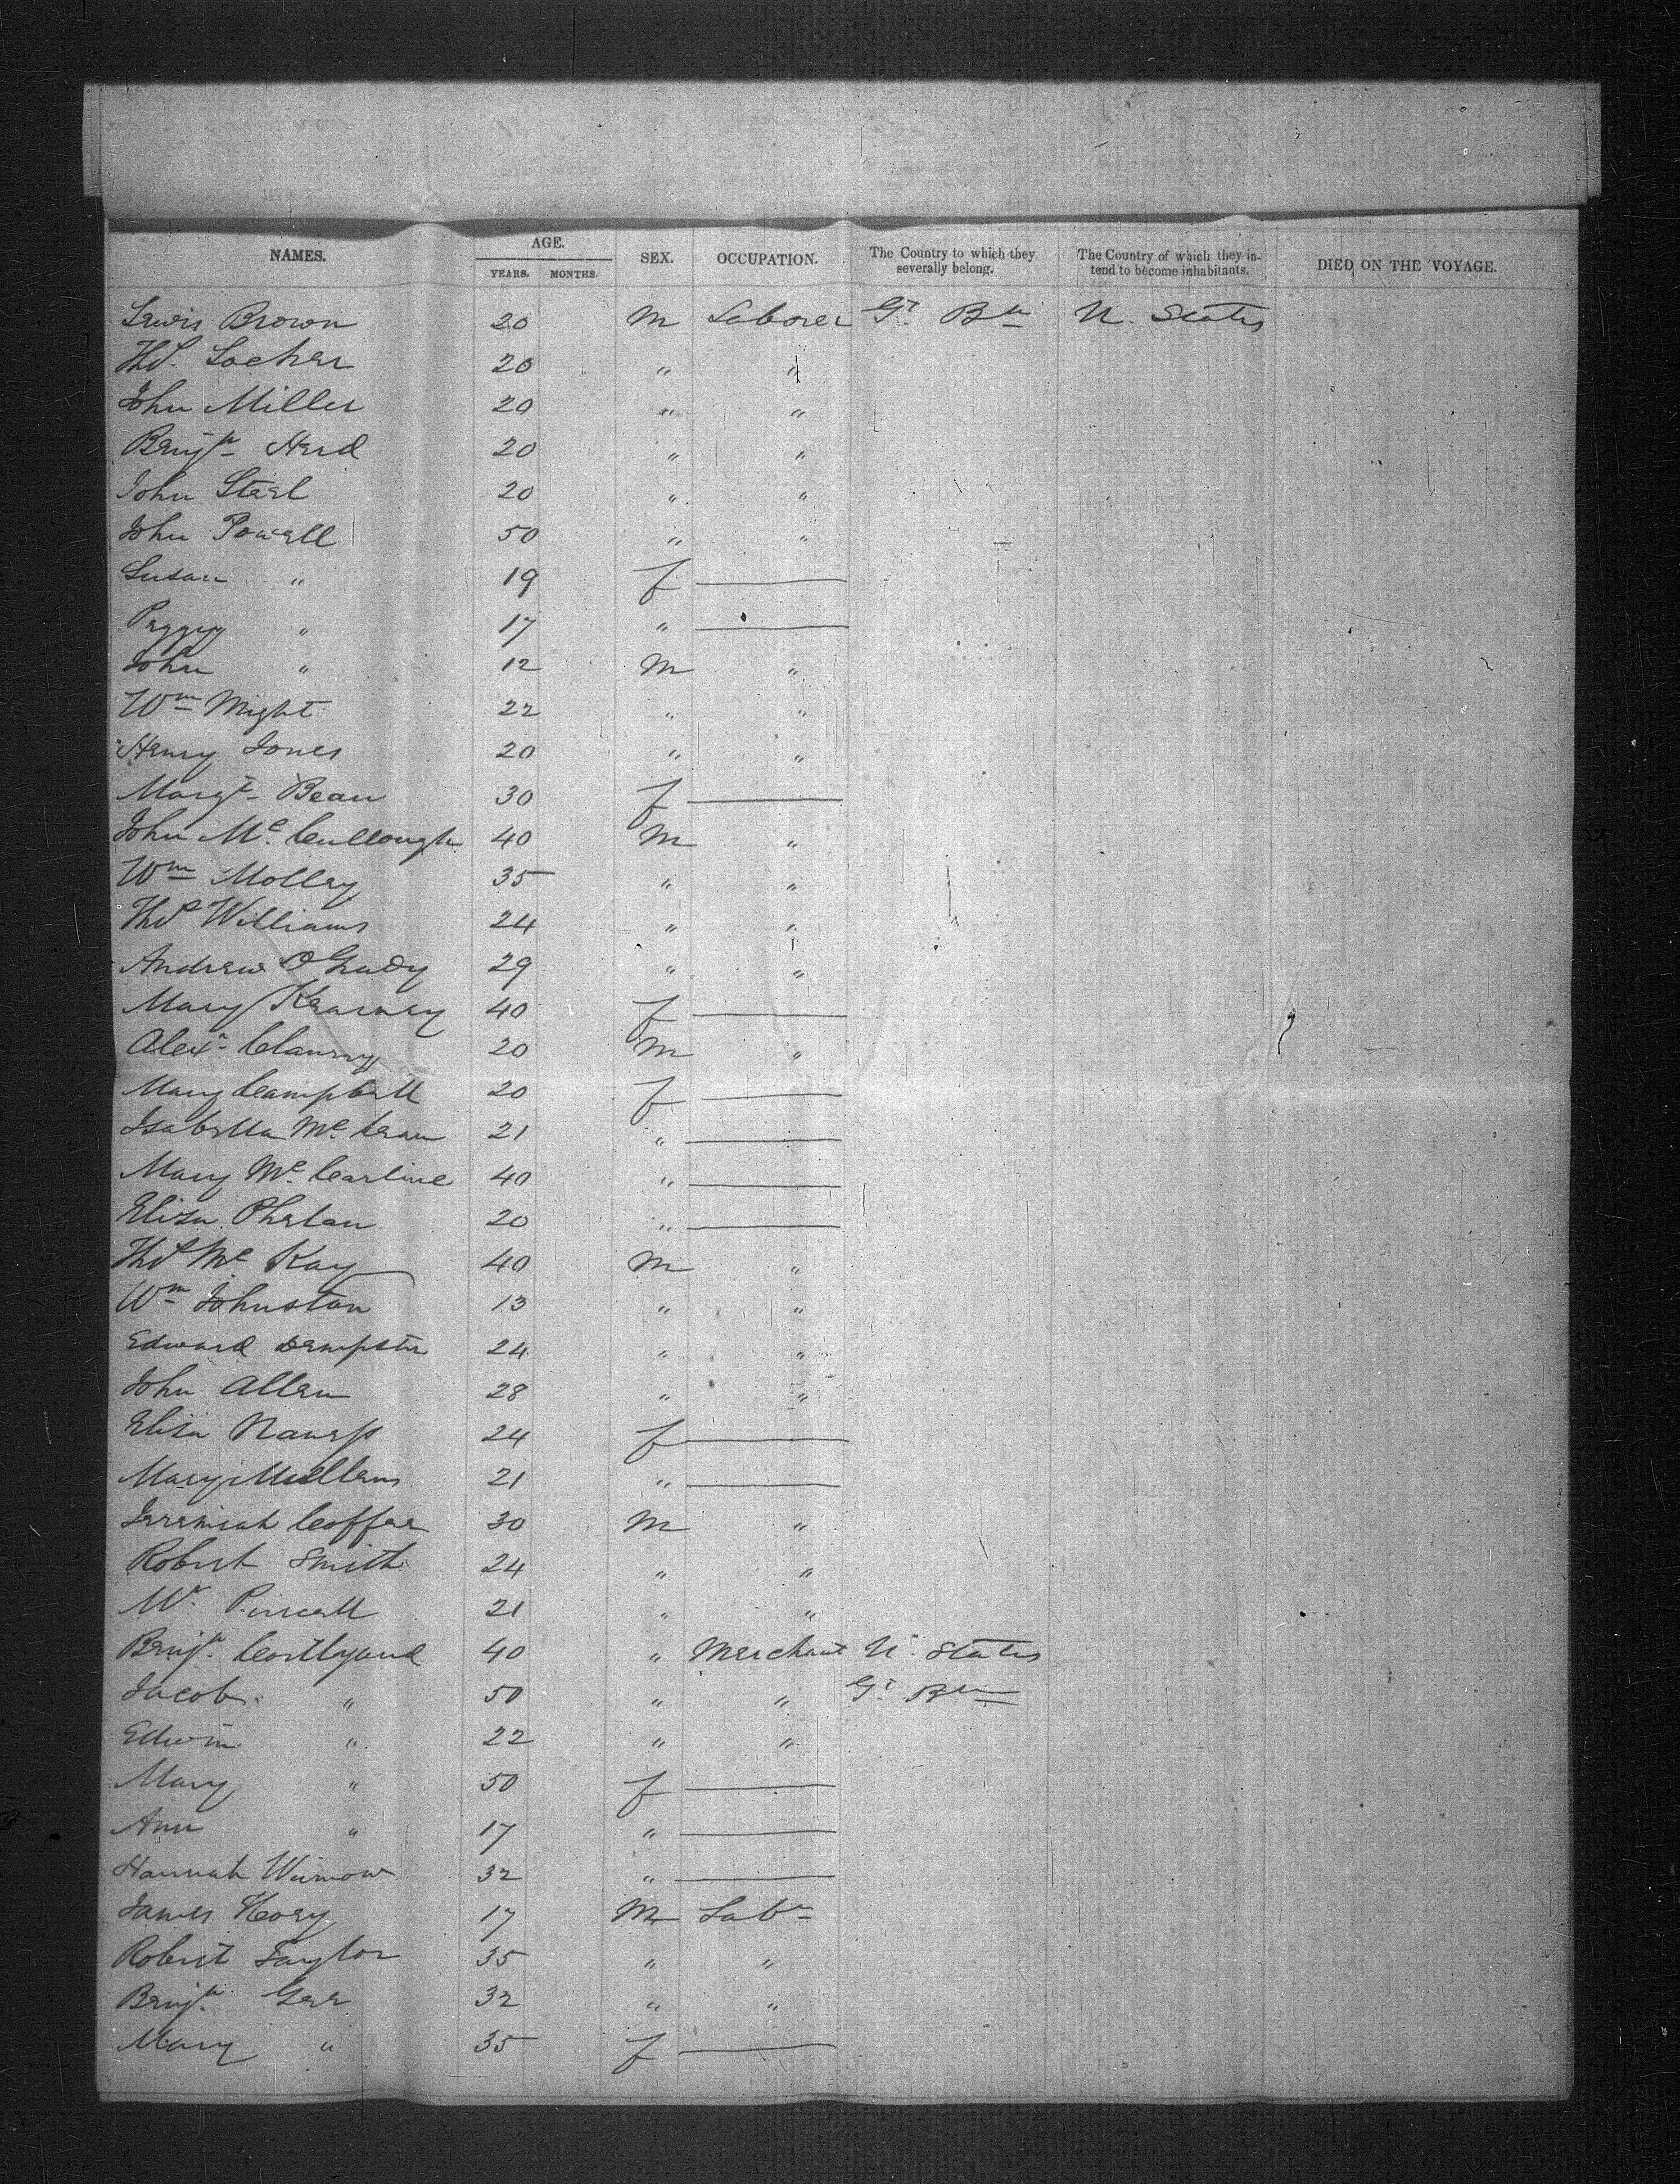 NAMES. AGE. SEX. OCCUPATION. The Country to which they severally belong. The Country of which they intend to become inhabitants. DIED ON THE VOYAGE.
YEARS. MONTHS.
Lewis Brown 20 M Laborer Gt. Bn U. States
Thos. Locher 20 " "
John Miller 20 " "
Benjn Herd 20 " "
John Steel 20 " "
John Powell 50 " "
Susan " 19 f
Peggy " 17 "
John " 12 M "
Wm Might 22 " "
Henry Jones 20 " "
Margt Bean 30 f
John Mc Cullough 40 M "
Wm Molley 35 " "
Thos Williams 24 " "
Andrew O Grady 29 " "
Mary Kearney 40 f
Alexr 20 M "
Mary Campbell 20 f
Isabella Mc 21 "
Mary Mc Carline 40 "
Eliza Phelan 20 "
Thos Mc Kay 40 M "
Wm Johnston 13 " "
Edward Dempster 24 " "
John Allen 28 " "
Eliza 24 f
Mary Mullens 21 "
Jeremiah Coffee 30 M "
Robert Smith 24 " "
Purcell 21 " "
Benjn 40 " Merchant U. States
Jacob " 50 " " Gt Bn
Edwin " 22 " "
Mary " 50 f
Ann " 17 "
Hannah 32 "
James 17 M Labr
Robert Taylor 35 " "
Benjn Gee 32 " "
Mary " 35 f